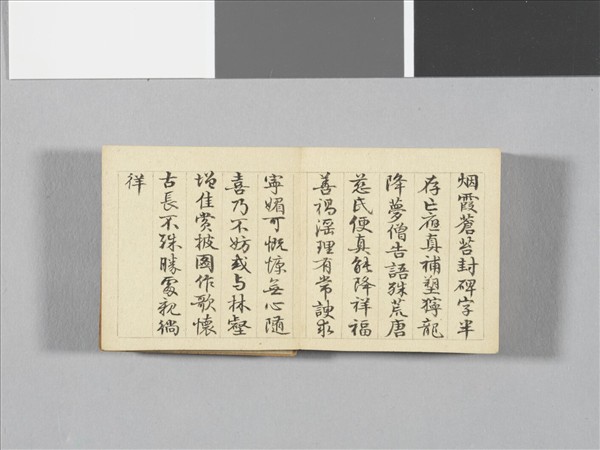 烟霞蒼苔封碑字半
存亡應真補塑獰龍
降夢僧告語殊荒唐
慈氏便真能降祥福
善禍滛理有常諛求
寧媚可慨慷無心隨
喜乃不妨或与林壑
增佳賞披圖作歌懷
古長不殊勝處親徜
徉